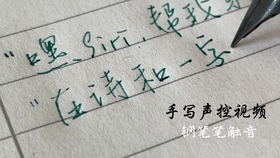 "嘿, Siri, 帮我
"在诗和一字
手写声控视频
钢笔笔触音